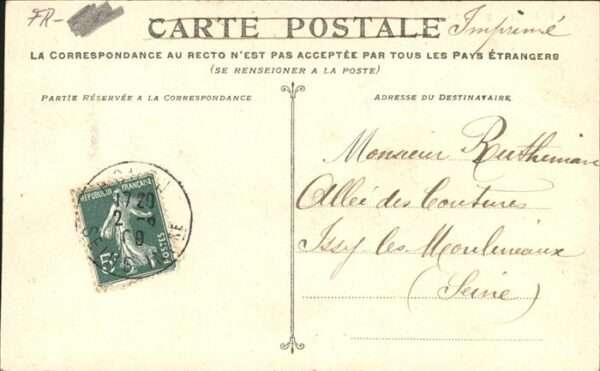 FR-
CARTE POSTALE
Imprimé
LA CORRESPONDANCE AU RECTO N'EST PAS ACCEPTÉE PAR TOUS LES PAYS ÉTRANGERS
(SE RENSEIGNER A LA POSTE)
PARTIE RÉSERVÉE A LA CORRESPONDANCE
ADRESSE DU DESTINATAIRE
Monsieur
Allée des Coutures
Issy les Moulineaux
(Seine)
REPUBLIQUE FRANÇAISE
17 20
2
09
5c
POSTES